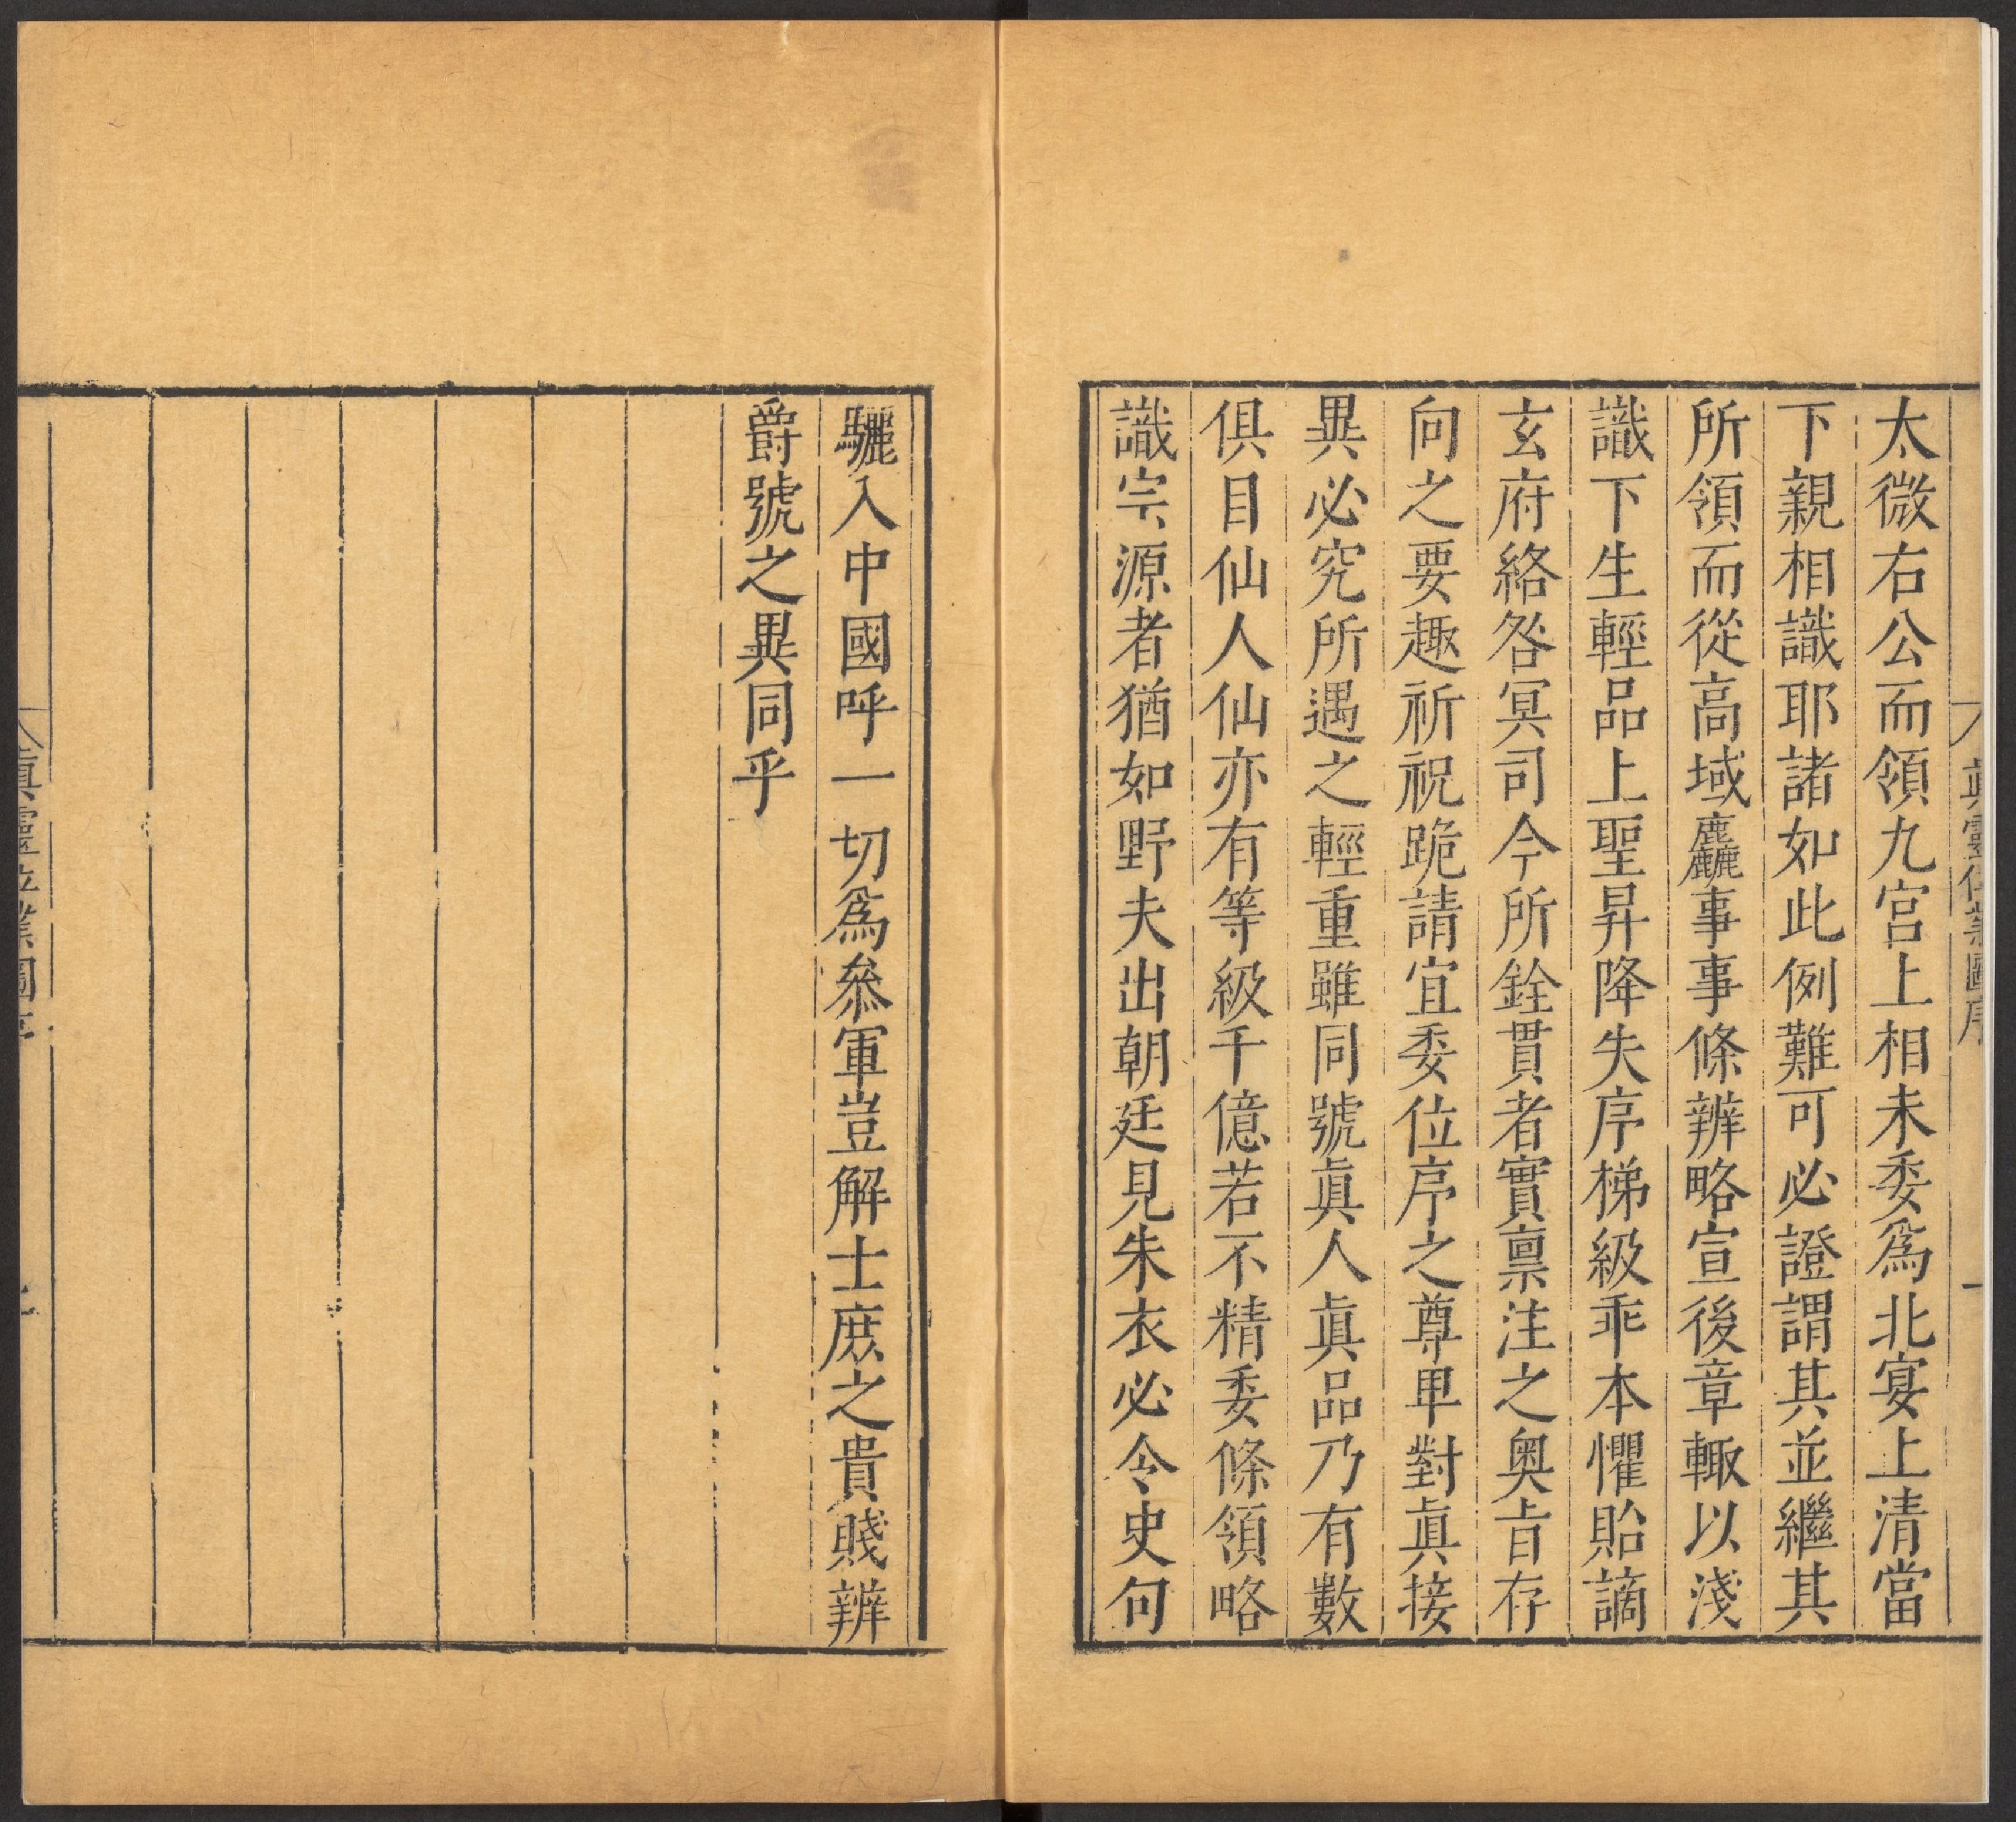 眞靈位業圖序
一
太微右公而領九宮上相未委爲北宴上清當
下親相識耶諸如此例難可必證謂其並繼其
所領而從高域麤事事條辨略宣後章輙以淺
識下生輕品上聖昇降失序梯級乖本懼貽謫
玄府絡咎冥司今所銓貫者實稟注之奥旨存
向之要趣祈祝跪請宜委位序之尊卑對眞接
異必究所遇之輕重雖同號眞人眞品乃有數
俱目仙人仙亦有等級千億若不精委條領略
識宗源者猶如野夫出朝廷見朱衣必令史句
驪入中國呼一切爲叅軍豈解士庶之貴賤辨
爵號之異同乎
眞靈位業圖序